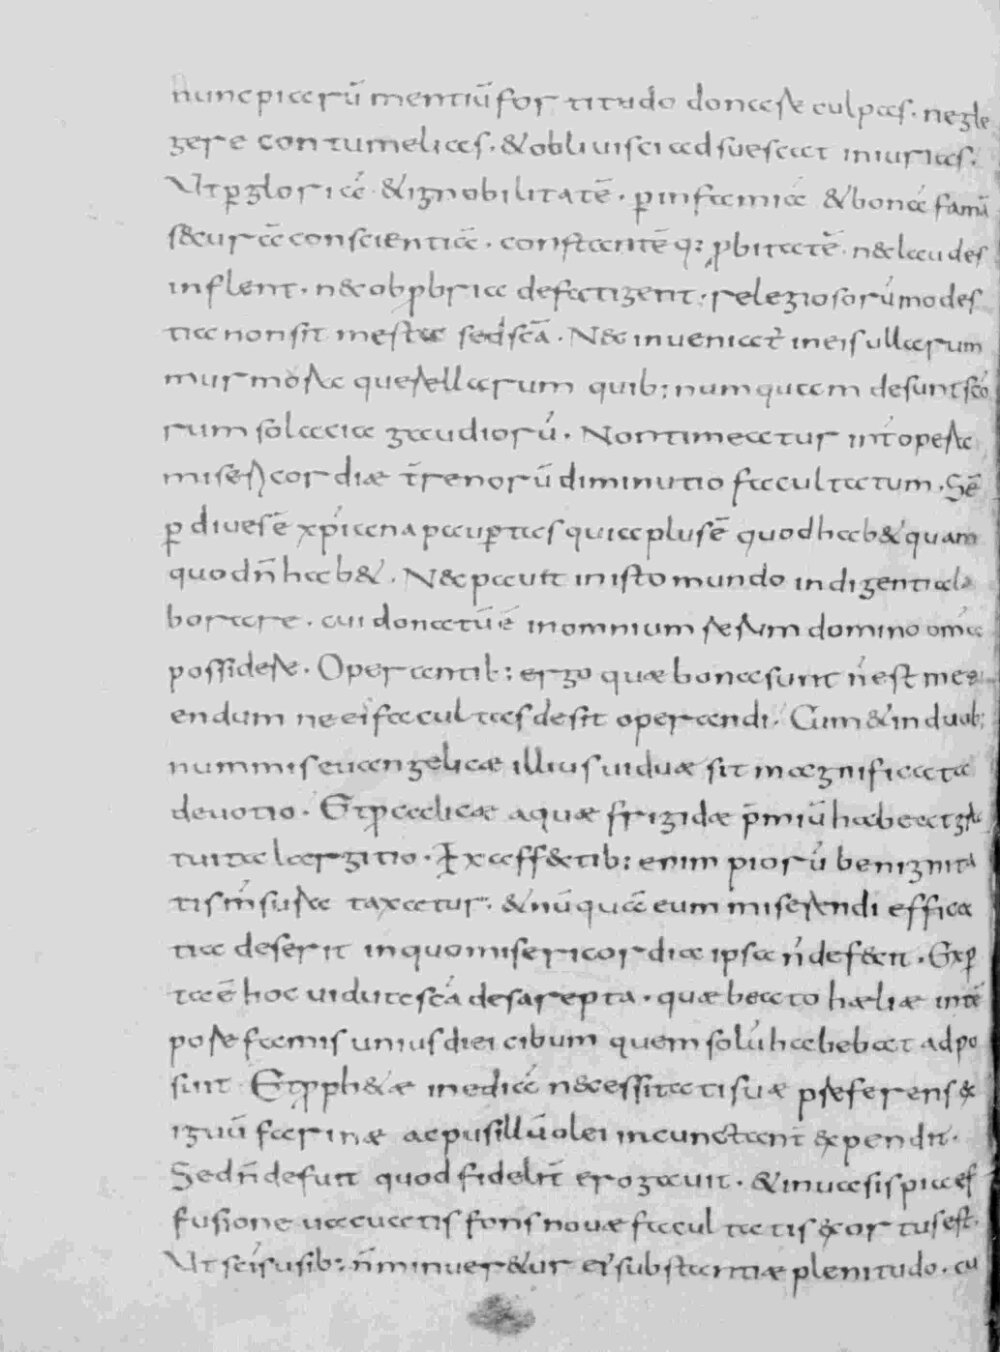 nunc piarū mentiū fortitudo donare culpas · negle
gere contumelias · & obliuisci adsuescat iniurias ·
Ut p̲ gloriā & ignobilitatē · p̲ infamiā & bonā famā
secura conscientia · constantē q: probitatē · nec laudes
inflent · nec obprbria defatigent · relegiosorū modes
tia non sit mesta sed scā · Nec inueniat̄ in eis ullarum
murmor a querellarum quib: numquam desunt scō
rum solacia gaudiorū · Non timeatur int̄ opera
misericordiæ t̄renorū diminutio facultatum · Sē
p̲ diues ē xp̄iana paup̲tas quia plus ē quod hab& quam
quod n̄ hab& · Nec pauit in isto mundo indigentia la
borare · cui donatū ē in omnium rerum domino om̄a
possidere · Operantib: ergo quæ bona sunt n̄ est me
endum ne eis facultas desit operandi · Cum & in duob:
nummis euangelicæ illius uiduæ sit magnificata
deuotio · Et p̲ calicæ aquæ frigidæ p̄miū habeat gra
tuita largitio · Ex affectib: enim piorū benignita
tis m̄sura taxatur · & nūquā eum miserendi effica
tia deserit in quo misericordia ipsa n̄ defecit · Exp̲
ta ē hoc uidua scā de sarepta · quæ beato hæliæ intē
pore famis unius diei cibum quem solū habebat adpo
suit Et p̲ph&æ inediā necessitati suæ p̄ferens ex
iguū farinæ ac pusillū olei incunctant̄ expendit ·
Sed n̄ defuit quod fidelit̄ erogauit · & in uasis pia ef
fusione uacuatis fons nouæ facultatis exortus est ·
Ut scīs usib: n̄ minuer&ur ei substantiæ plenitudo · cu